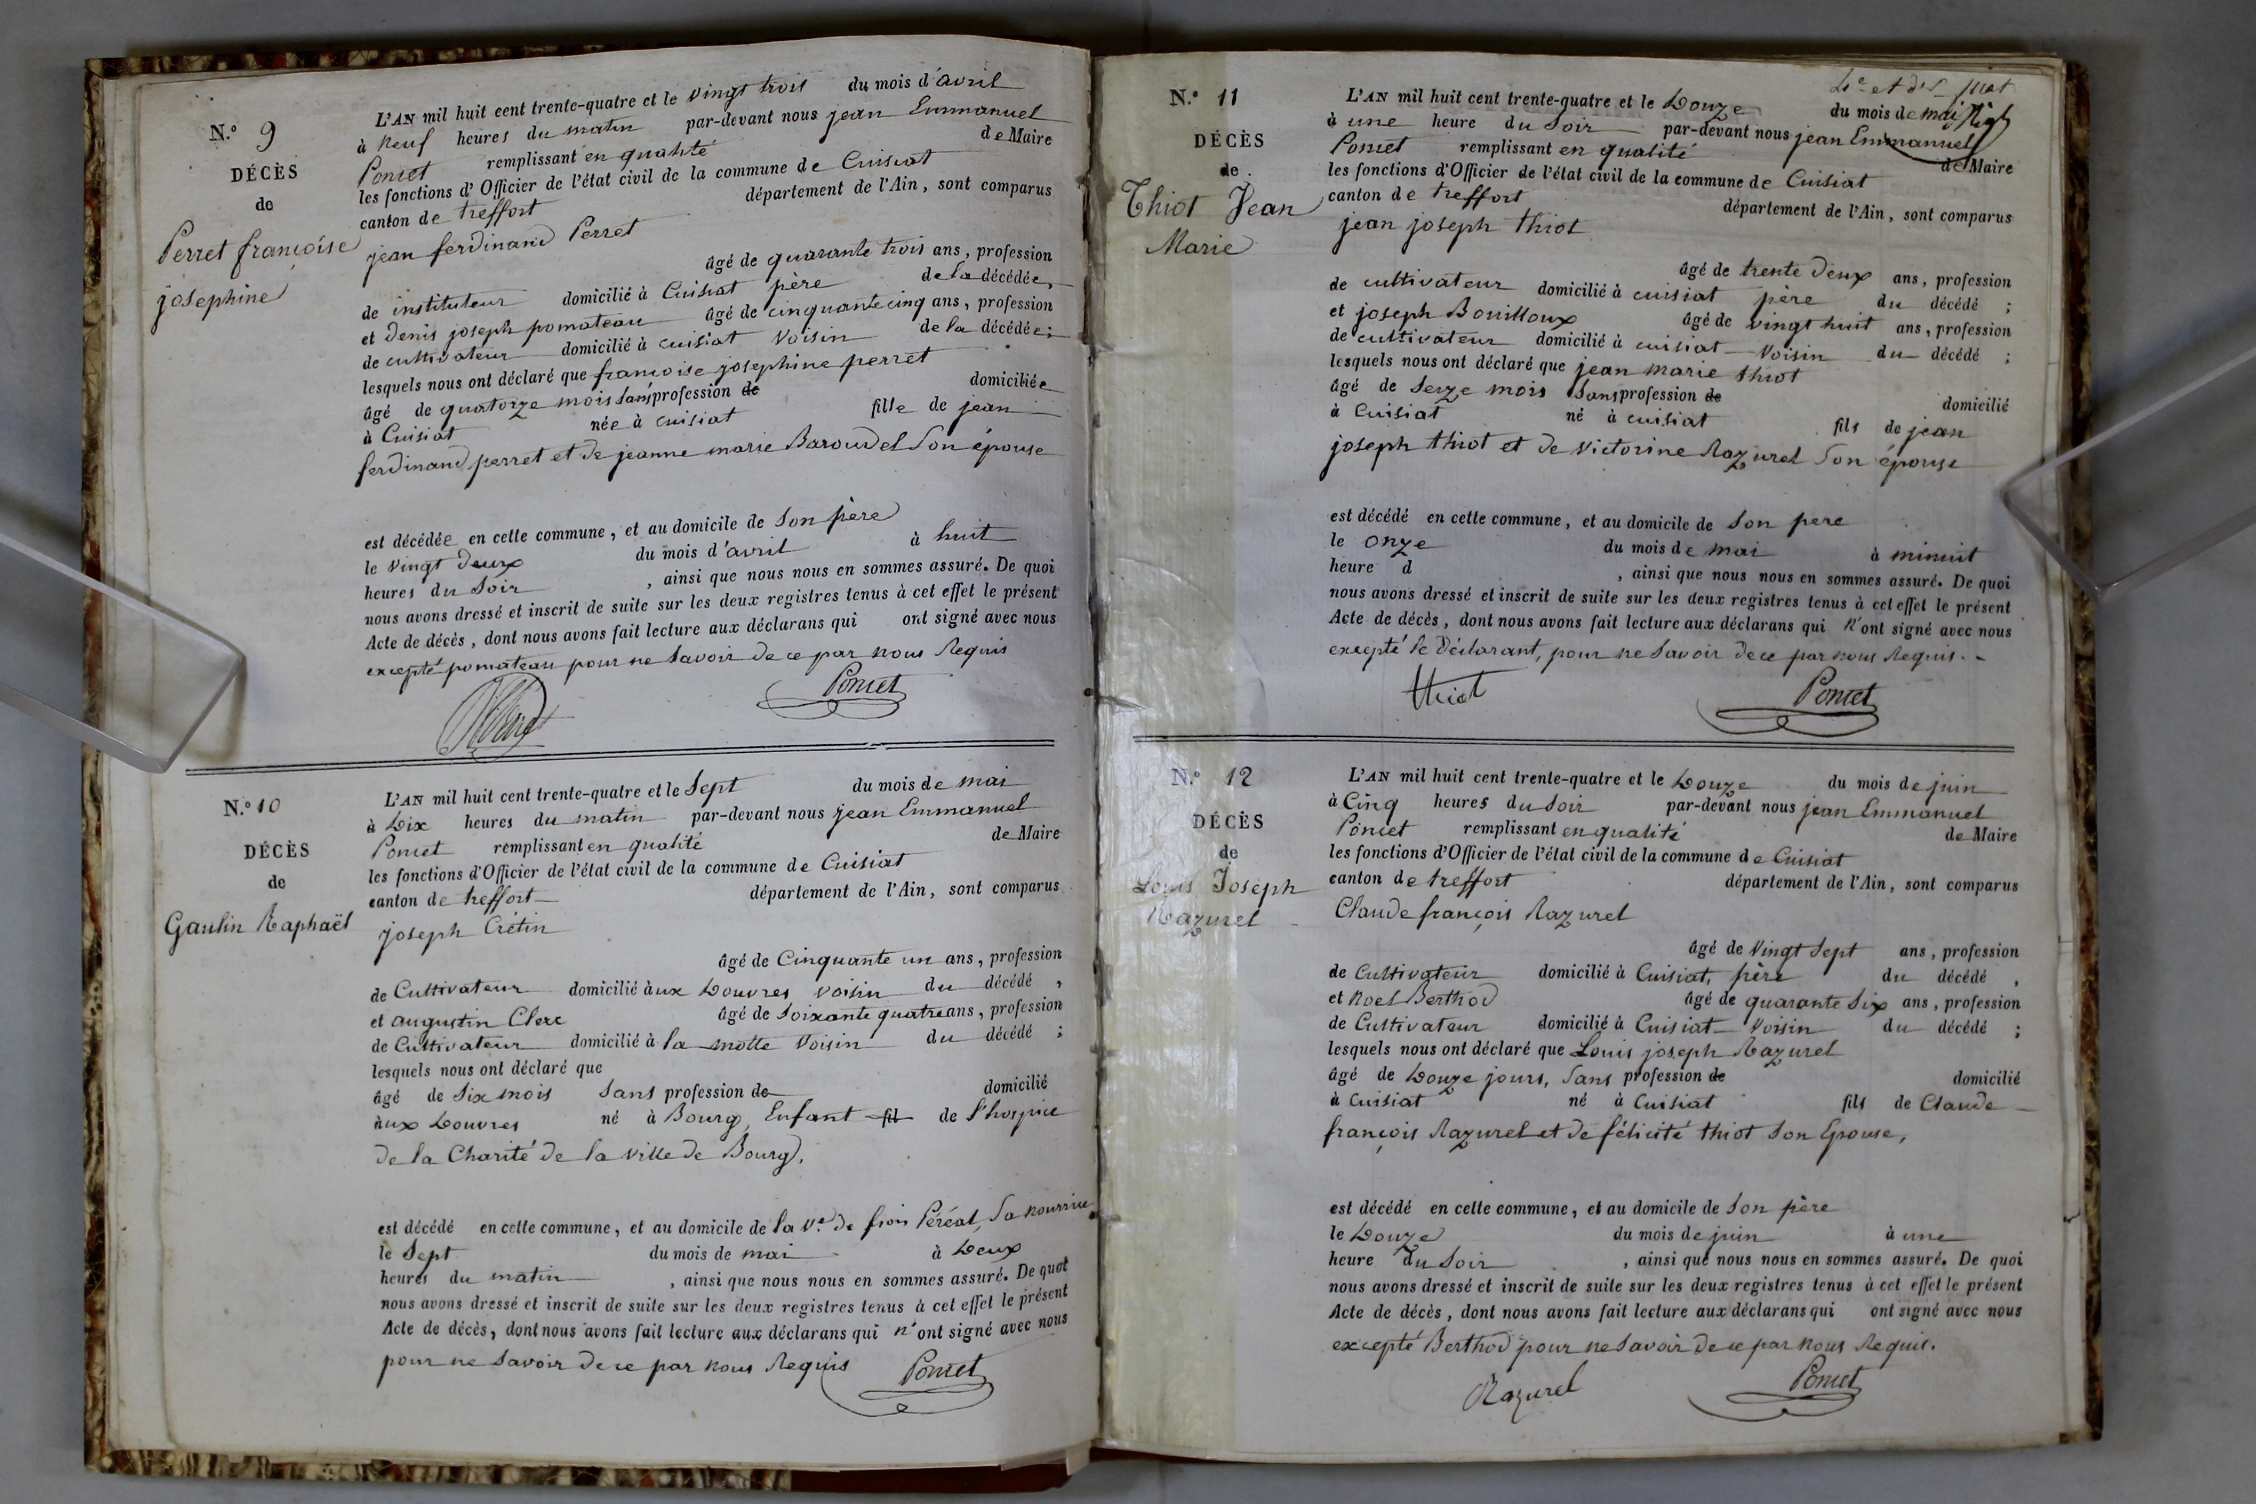 N.o 9
DÉCÈS
de
Perret françoise
josephine
L'AN mil huit cent trente-quatre et le vingt trois du mois d'avril
à neuf heures du matin par-devant nous jean Emmanuel
Poncet remplissant en qualité de Maire
les fonctions d'Officier de l'état civil de la commune de Cuisiat
canton de treffort département de l'Ain, sont comparus
jean ferdinand Perret
âgé de quarante trois ans, profession
de instituteur domicilié à Cuisiat père de la décédée,
et denis joseph pomateau âgé de cinquante cinq ans, profession
de cultivateur domicilié à cuisiat voisin de la décédée;
lesquels nous ont déclaré que françoise josephine perret
âgé de quatorze mois sans profession de domiciliée
à Cuisiat née à cuisiat fille de jean
ferdinand perret et de jeanne marie Baroudel son épouse
est décédée en cette commune, et au domicile de son père
le vingt deux du mois d'avril à huit
heures du soir, ainsi que nous nous en sommes assuré. De quoi
nous avons dressé et inscrit de suite sur les deux registres tenus à cet effet le présent
Acte de décès, dont nous avons fait lecture aux déclarans qui ont signé avec nous
excepté pomateau pour ne savoir de ce par nous Requis
Poncet
N.o 10
DÉCÈS
de
Gaulin Raphaël
L'AN mil huit cent trente-quatre et le sept du mois de mai
à Dix heures du matin par-devant nous jean Emmanuel
Poncet remplissant en qualité de Maire
les fonctions d'Officier de l'état civil de la commune de Cuisiat
canton de treffort département de l'Ain, sont comparus
joseph Crétin
âgé de Cinquante un ans, profession
de Cultivateur domicilié àux Douvres voisin du décédé,
et augustin Clerc âgé de soixante quatre ans, profession
de Cultivateur domicilié à la motte voisin du décédé;
lesquels nous ont déclaré que
âgé de six mois sans profession de domicilié
àux Douvres né à Bourg, Enfant fil de l'hospice
de la Charité de la ville de Bourg,
est décédé en cette commune, et au domicile de la ve. de Péréal, sa nourrice
le sept du mois de mai à Deux
heures du matin, ainsi que nous nous en sommes assuré. De quoi
nous avons dressé et inscrit de suite sur les deux registres tenus à cet effet le présent
Acte de décès, dont nous avons fait lecture aux déclarans qui n'ont signé avec nous
pour ne savoir de ce par nous Requis
Poncet
N.o 11
DÉCÈS
de
Thiot Jean
Marie
L'AN mil huit cent trente-quatre et le Douze du mois de mai
à une heure du soir par-devant nous jean Emmanuel
Poncet remplissant en qualité de Maire
les fonctions d'Officier de l'état civil de la commune de Cuisiat
canton de treffort département de l'Ain, sont comparus
jean joseph thiot
âgé de trente deux ans, profession
de cultivateur domicilié à cuisiat père du décédé;
et joseph Bouilloux âgé de vingt huit ans, profession
de cultivateur domicilié à cuisiat voisin du décédé;
lesquels nous ont déclaré que jean marie thiot
âgé de seize mois sans profession de domicilié
à Cuisiat né à cuisiat fils de jean
joseph thiot et de victorine Razurel son épouse
est décédé en cette commune, et au domicile de son pere
le onze du mois de mai à minuit
heure d, ainsi que nous nous en sommes assuré. De quoi
nous avons dressé et inscrit de suite sur les deux registres tenus à cet effet le présent
Acte de décès, dont nous avons fait lecture aux déclarans qui n'ont signé avec nous
excepté le Déclarant, pour ne savoir de ce par nous Requis.
thiot Poncet
N.o 12
DÉCÈS
de
Louis Joseph
Razurel
L'AN mil huit cent trente-quatre et le Douze du mois de juin
à Cinq heures du soir par-devant nous jean Emmanuel
Poncet remplissant en qualité de Maire
les fonctions d'Officier de l'état civil de la commune de Cuisiat
canton de treffort département de l'Ain, sont comparus
Claude françois Razurel
âgé de vingt sept ans, profession
de Cultivateur domicilié à Cuisiat, père du décédé,
et Noel Berthod âgé de quarante six ans, profession
de Cultivateur domicilié à Cuisiat voisin du décédé;
lesquels nous ont déclaré que Louis joseph Razurel
âgé de Douze jours, sans profession de domicilié
à Cuisiat né à Cuisiat fils de Claude
françois Razurel et de félicité thiot son Epouse,
est décédé en cette commune, et au domicile de son père
le Douze du mois de juin à une
heure du soir, ainsi que nous nous en sommes assuré. De quoi
nous avons dressé et inscrit de suite sur les deux registres tenus à cet effet le présent
Acte de décès, dont nous avons fait lecture aux déclarans qui ont signé avec nous
excepté Berthod pour ne savoir de ce par nous Requis.
Razurel Poncet